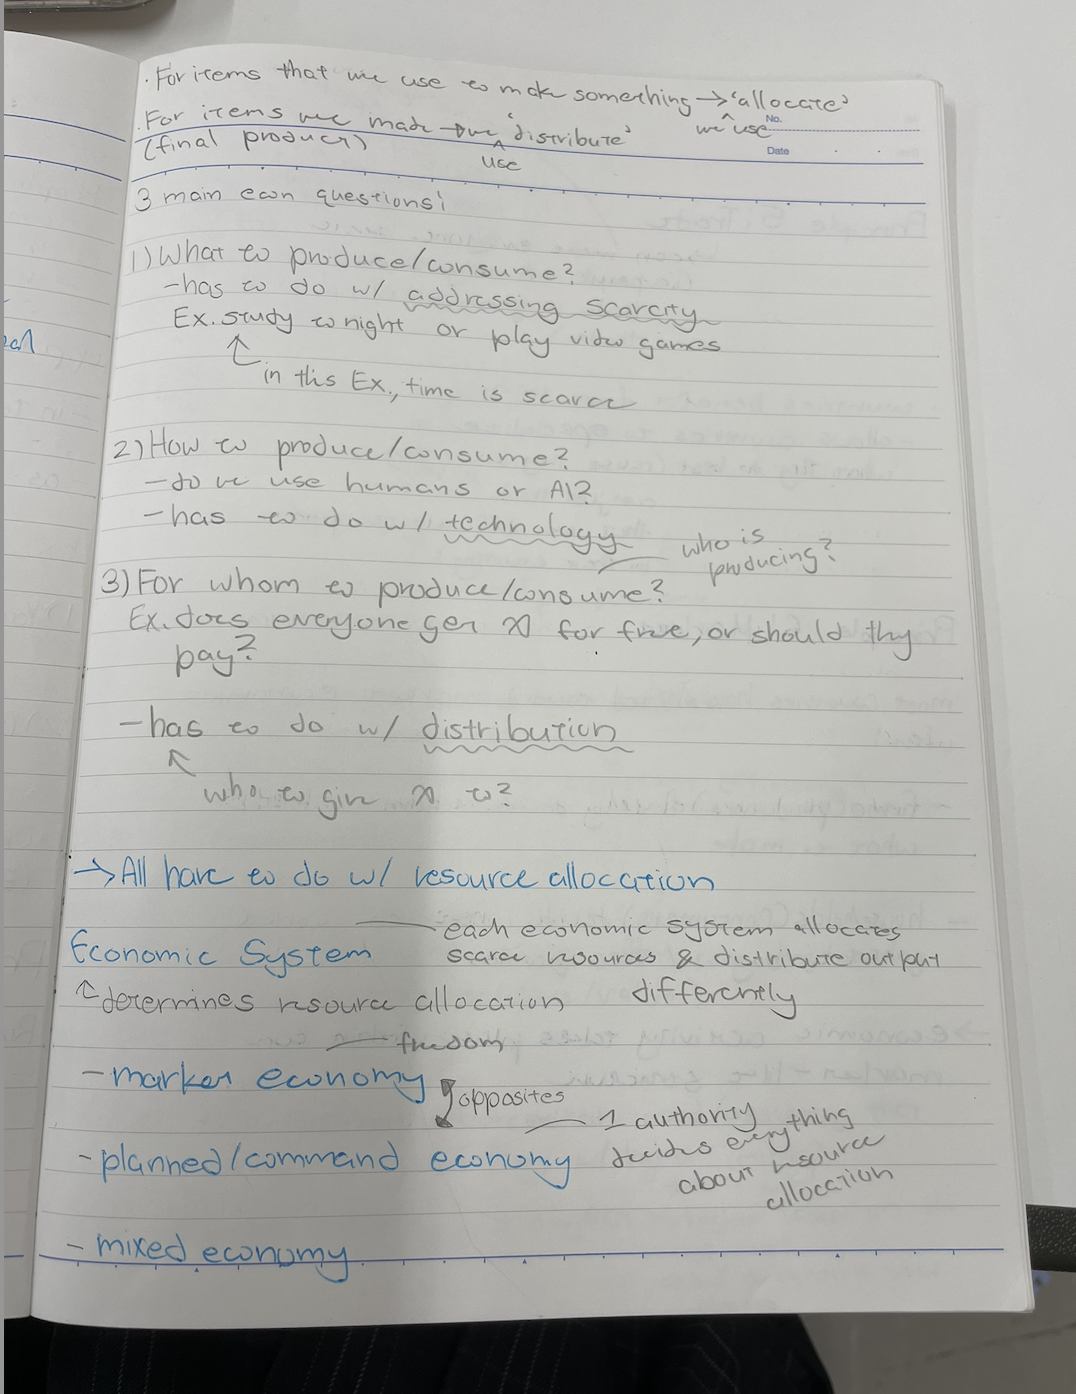 · For items that we use to make something → 'allocate'
we ^ use
No.
· For items we made → we 'distribute'
(final product)
^ use
Date
3 main econ questions:
1) What to produce/consume?
- has to do w/ addressing scarcity
Ex. study tonight or play video games
in this Ex., time is scarce
2) How to produce/consume?
- do we use humans or AI?
- has to do w/ technology
who is
producing?
3) For whom to produce/consume?
Ex. does everyone get x for free, or should they
pay?
- has to do w/ distribution
who to give x to?
→ All have to do w/ resource allocation
Economic System
each economic system allocates
scarce resources & distribute output
differently
determines resource allocation
freedom
- market economy
opposites
- planned/command economy
1 authority
decides everything
about resource
allocation
- mixed economy